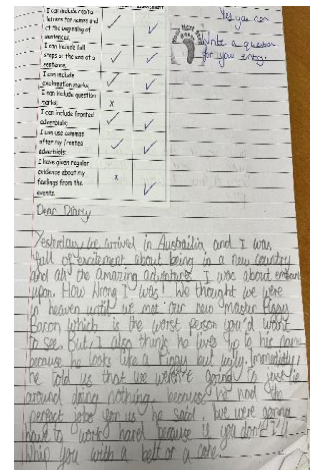 letters for names and
at the beginning of
sentences.
I can include full
stops at the end of a
sentence.
I can include
exclamation marks.
I can include question
marks.
x
I can include fronted
adverbials.
I can use commas
after my fronted
adverbials.
I have given regular
evidence about my
feelings from the
events.
x
Yes you can
Write a question
for your entry.
Dear Diary
Yesterday we arrivel in Austrailia and I was
full of excitement about being in a new country
and all the amazing adventure I was about
upon. How Wrong I was! We thought we were
in heaven until we met our new Master
Bacon which is the worst person you'd want
to see. But I also think he lives up to his name
because he looks like a but ugly. Immediatly
he told us that we weren't going to just lie
around doing nothing because he had the
perfect jobs for us he said we were gonna
have to work hard because if you don't I'll
whip you with a belt or a cane.